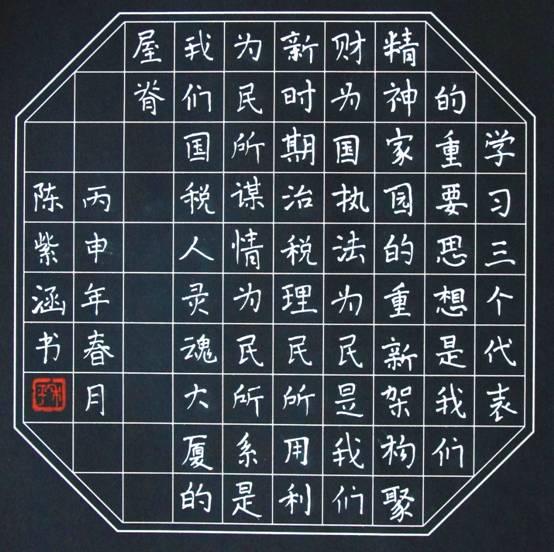 学习三个代表
的重要思想是我们
精神家园的重新架构聚
财为国执法为民是我们
新时期治税理民所用利
为民所谋情为民所系是
我们国税人灵魂大厦的
屋脊
丙申年春月
陈紫涵书